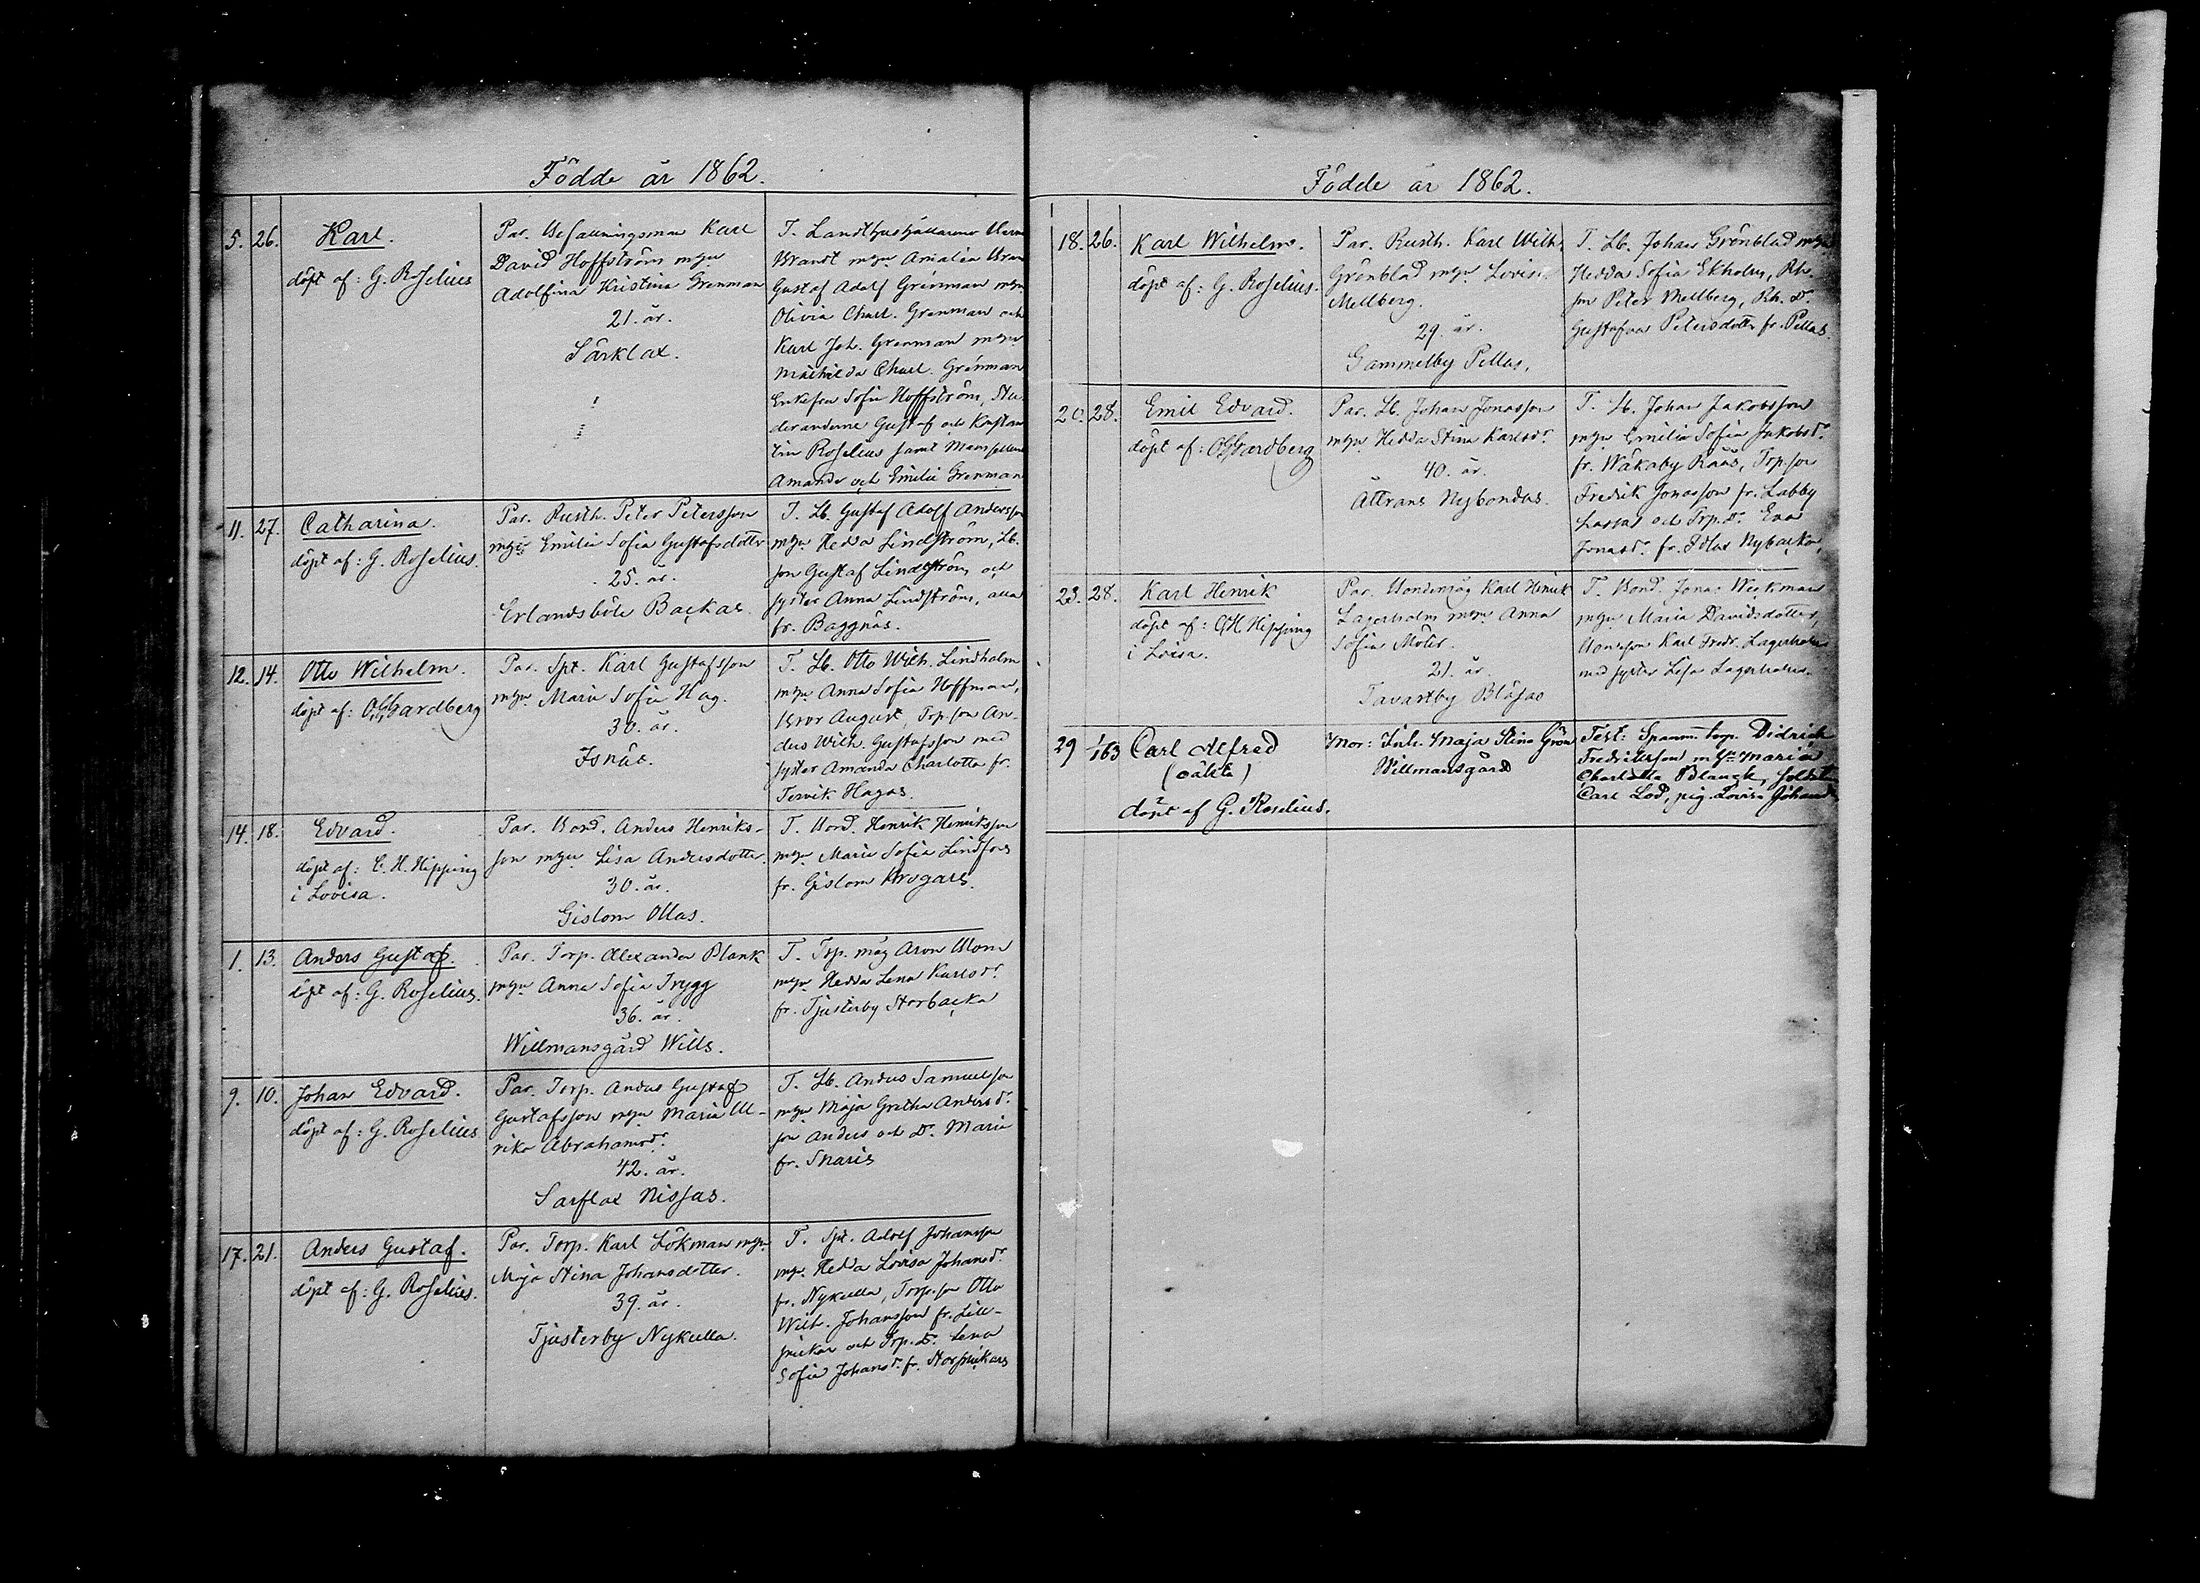 Födde år 1862.
5. 26. Karl.
döpt af: G. Roselius
Par. Befallningsman Karl
David Hoffström m hu
Adolfina Kristina Grenman
21. år.
Särklax.
T. Landthushållaren Herm
Brandt m hu Amalia Bran
Gustaf Adolf Grenman m hu
Olivia Charl. Grenman och
Karl Joh. Grenman m hu
Mathilda Charl. Grenman
Enkefru Sofia Hoffström, Stu
deranderne Gustaf och Konstan
tin Roselius samt Mamseller
Amanda och Emilie Grenman
11. 27. Catharina.
döpt af: G. Roselius.
Par. Rusth. Peter Petersson
m hu Emilia Sofia Gustafsdotter
25. år.
Erlandsböle Backas.
T. Lb. Gustaf Adolf Andersso
m hu Hedda Lindström, Lb.
son Gustaf Lindström och
syster Anna Lindström, alla
fr. Baggnäs.
12. 14. Otto Wilhelm.
döpt af: O. Gardberg
Par. Spt. Karl Gustafsson
m hu Maria Sofia Hag.
30. år.
Isnäs.
T. Lb. Otto Wilh. Lindholm
m hu Anna Sofia Hoffman,
Bror August, Trp. son An-
ders Wilh. Gustafsson med
syster Amanda Charlotta fr.
Tervik Hagas.
14. 18. Edvard.
döpt af: C. H. Hipping
i Lovisa.
Par. Bond. Anders Henriks-
son m hu Lisa Andersdotter.
30. år.
Gislom Ollas.
T. Bond. Henrik Henriksson
m hu Maria Sofia Lindfors
fr. Gislom Krogars.
1. 13. Anders Gustaf.
döpt af: G. Roselius.
Par. Torp. Alexander Plank
m hu Anna Sofia Trygg
36. år.
Willmansgård Wills.
T. Trp. måg Aron Blom
m hu Hedda Lena Karlsdr
fr. Tjusterby Storbacka
9. 10. Johan Edvard.
döpt af: G. Roselius
Par. Torp. Anders Gustaf
Gustafsson m hu Maria Ul-
rika Abrahamsdr
42. år.
Sarflax Nissas.
T. Lb. Anders Samuelsson
m hu Maja Gretha Andersdr
son Anders och Dr. Maria
fr. Skaris
17. 21. Anders Gustaf.
döpt af: G. Roselius.
Par. Torp. Karl Lökman m hu
Maja Stina Johansdotter.
39. år.
Tjusterby Nykulla.
T. Spt. Adolf Johansson
m hu Hedda Lovisa Johansdr
fr. Nykulla, Torp. son Otto
Wilh. Johansson fr. Lill-
och Trp. Dr. Lena
Sofia Johansdr. fr.
Födde år 1862.
18. 26. Karl Wilhelm.
döpt af: G. Roselius.
Par. Rusth. Karl Wilh.
Grönblad m hu Lovisa
Mellberg.
29. år.
Gammelby Pellas.
T. Lb. Johan Grönblad m hu
Hedda Sofia Ekholm, Rh.
son Peter Mellberg, Rh. Dr.
Gustafva Petersdotter fr. Pellas.
20. 28. Emil Edvard.
döpt af: O. Gardberg
Par. Lb. Johan Jonasson
m hu Hedda Stina Karlsdr
40. år.
Ättrans Nybondas.
T. Lb. Johan Jakobsson
m hu Emilia Sofia Jakobsdr
fr. Wåkaby Raas, Trp. son
Fredrik Jonasson fr. Labby
Lassas och Trp. Dr. Eva
Jonasdr. fr. Nybacka.
23. 28. Karl Henrik
döpt af: C. H. Hipping
i Lovisa.
Par. Bondemåg Karl Henrik
Lagerholm m hu Anna
Sofia Moter.
21. år
Tavastby Blåsas
T. Bond. Jonas Weckman
m hu Maria Davidsdotter,
Karl Fredr. Lagerholm
med syster Lisa Lagerholm.
29 1/1 63 Carl Alfred
(oäkta)
döpt af G. Roselius.
Mor: Inh. Maja Stina Grön
Willmansgård
Test: Spannm. torp. Didrich
Fredriksson m. hu Maria
Charlotta Planck, soldat
Carl Lod, pig. Lovisa Johansd